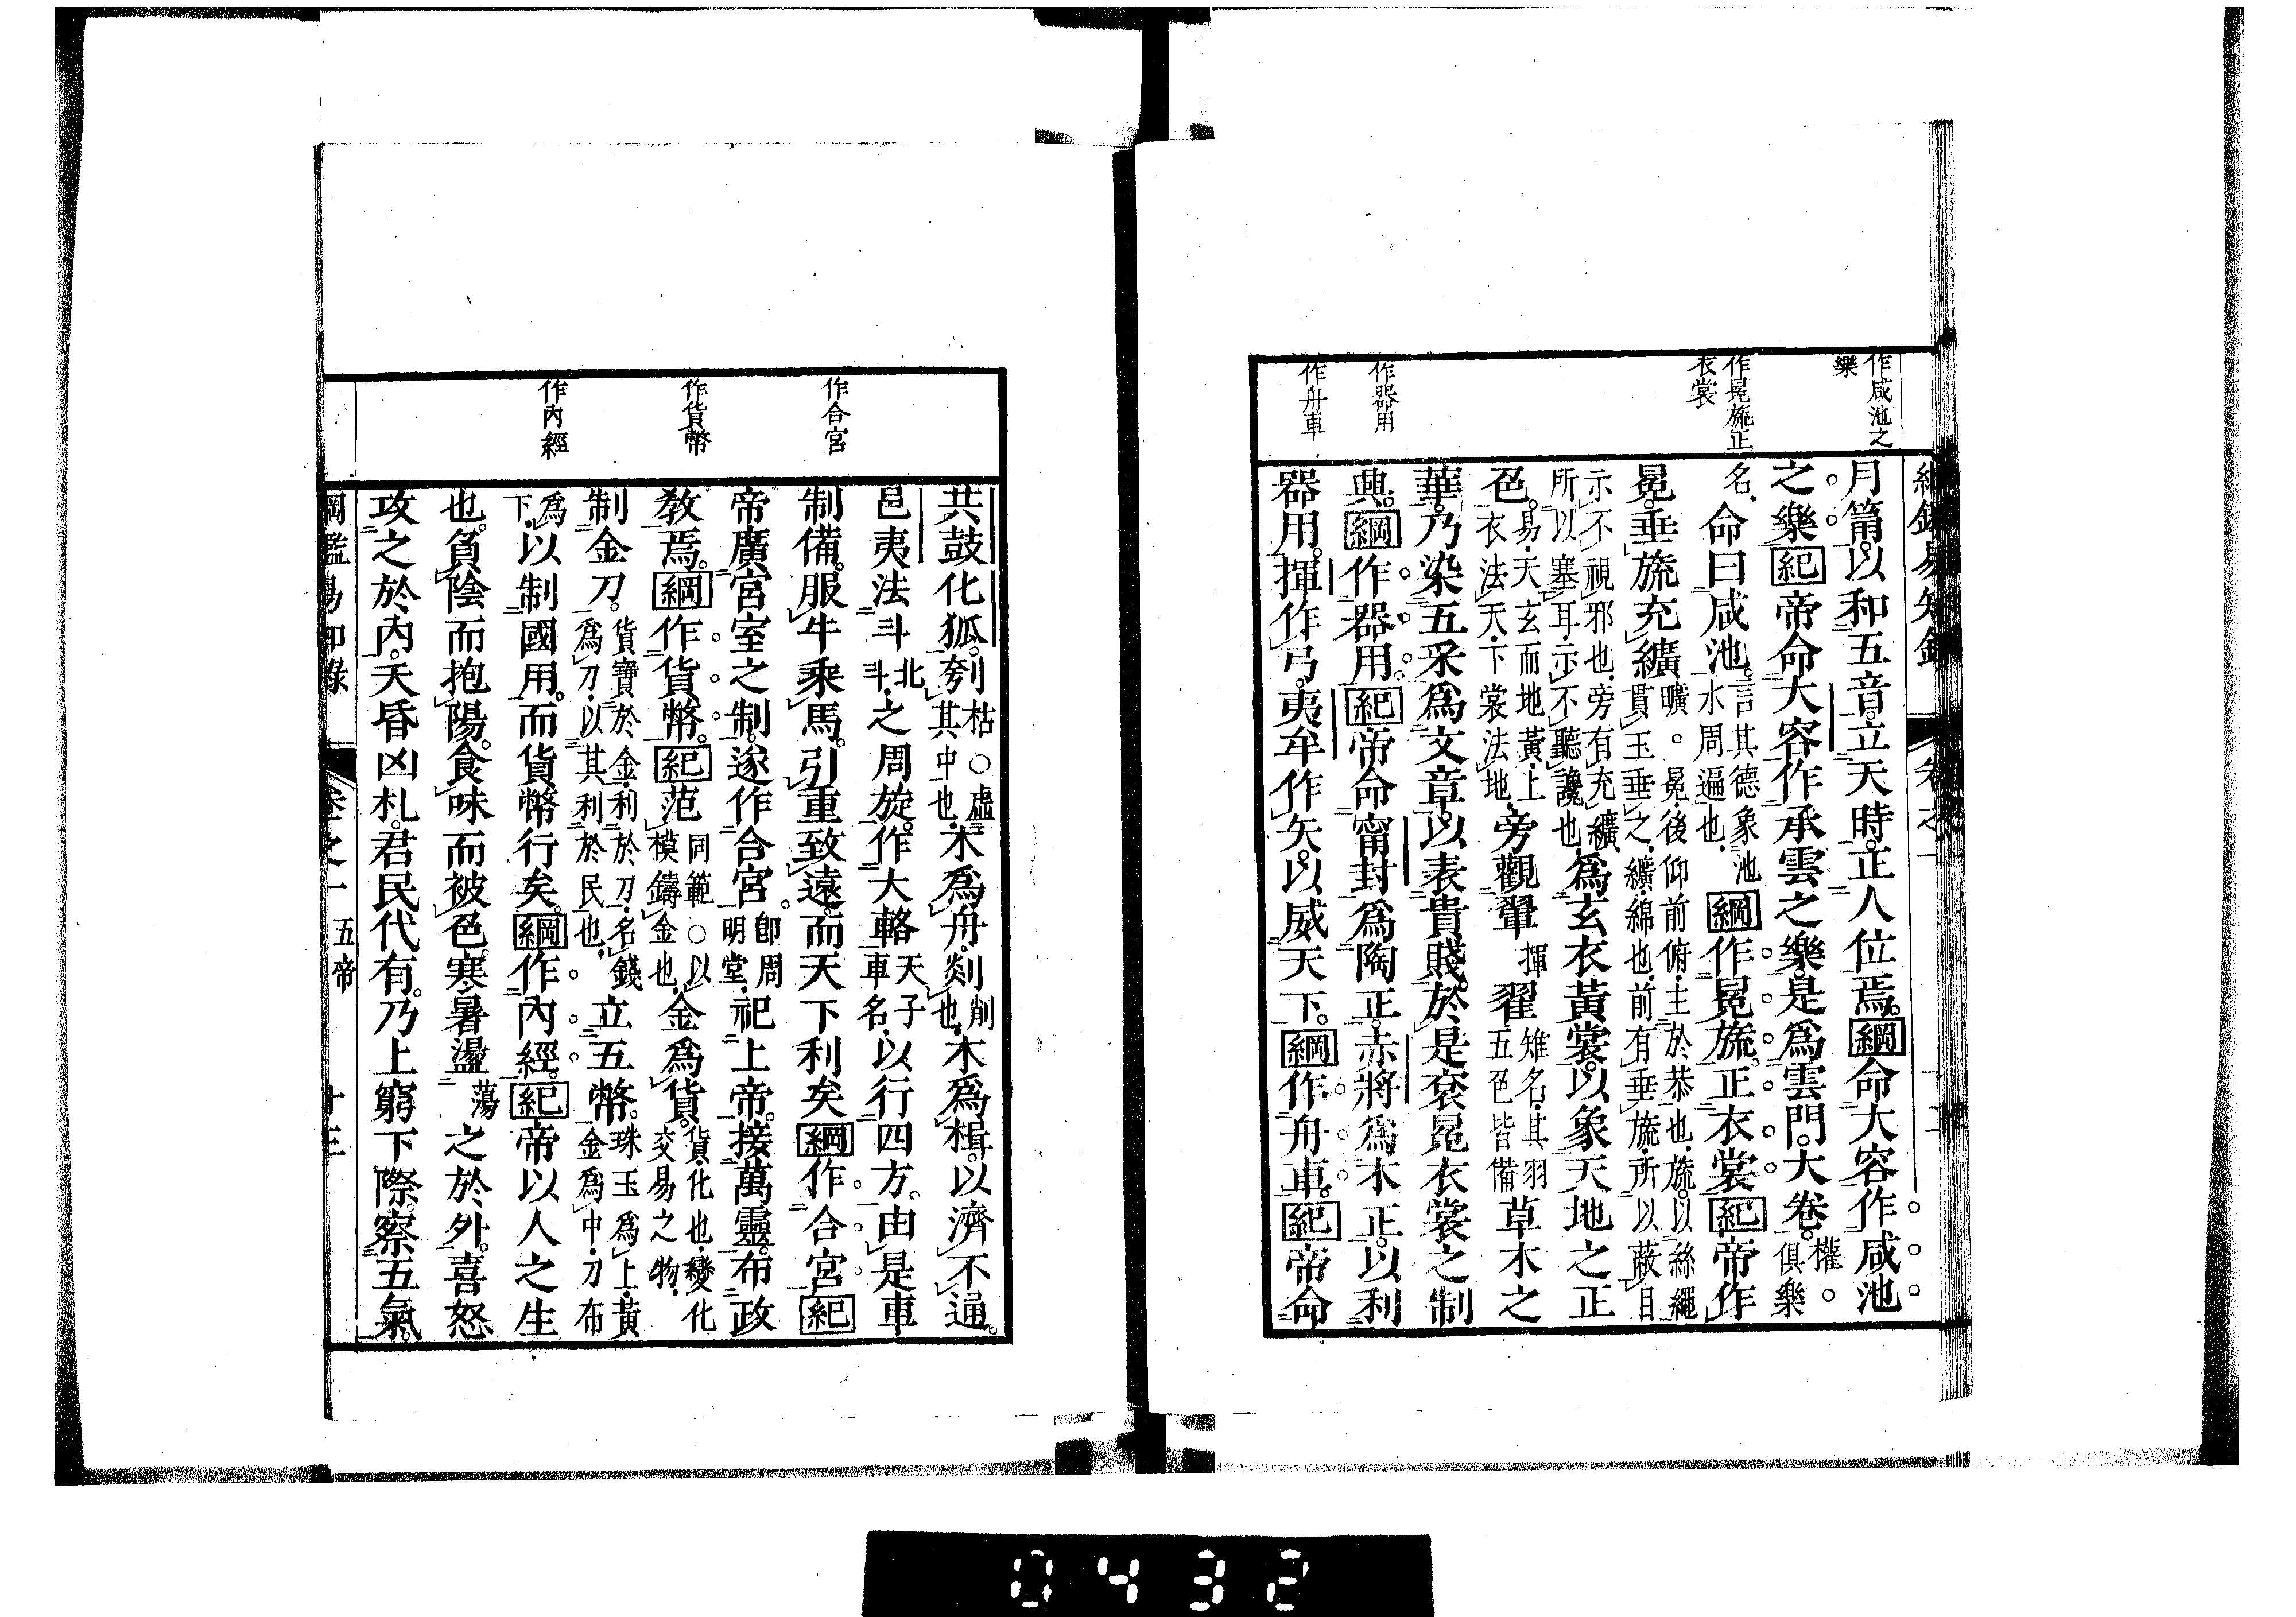 作咸池之
樂
作冕旒正
衣裳
作器用
作舟車
月筩。以和五音。立天時。正人位焉。綱命大容作咸池
之樂。紀帝命大容作承雲之樂。是爲雲門大卷。權。俱樂
名.命曰咸池。言其德象池水周遍也.綱作冕旒。正衣裳。紀帝作
冕。垂旒充纊曠。冕.後仰前俯.主於恭也.旒。以絲繩貫玉垂之.纊.綿也.前有垂旒.所以蔽目
示不視邪也.旁有充纊所以塞耳.示不聽讒也.爲玄衣黃裳。以象天地之正
色。易.天玄而地黃.上衣法天.下裳法地.旁觀翬揮翟雉名.其羽五色皆備草木之
華。乃染五采爲文章。以表貴賤。於是袞冕衣裳之制
興。綱作器用。紀帝命甯封爲陶正。赤將爲木正。以利
器用。揮作弓。夷牟作矢。以威天下。綱作舟車。紀帝命
卷之一
作合宮
作貨幣
作內經
共鼓化狐。刳枯○虛其中也.木爲舟。剡削也.木爲楫。以濟不通。
邑夷法斗北斗.之周旋。作大輅天子車名.以行四方。由是車
制備。服牛乘馬。引重致遠。而天下利矣。綱作合宮。紀
帝廣宮室之制。遂作合宮。卽周明堂.祀上帝。接萬靈。布政
敎焉。綱作貨幣。紀范同範○以模鑄金也.金爲貨。貨.化也.變化交易之物.
制金刀。貨寶於金.利於刀.名錢爲刀.以其利於民也.立五幣。珠玉爲上.黃金爲中.刀布
爲下.以制國用。而貨幣行矣。綱作內經。紀帝以人之生
也。負陰而抱陽。食味而被色。寒暑盪蕩之於外。喜怒
攻之於內。夭昏凶札。君民代有。乃上窮下際。察五氣。
綱鑑易知錄 卷之一 五帝 十三
0432